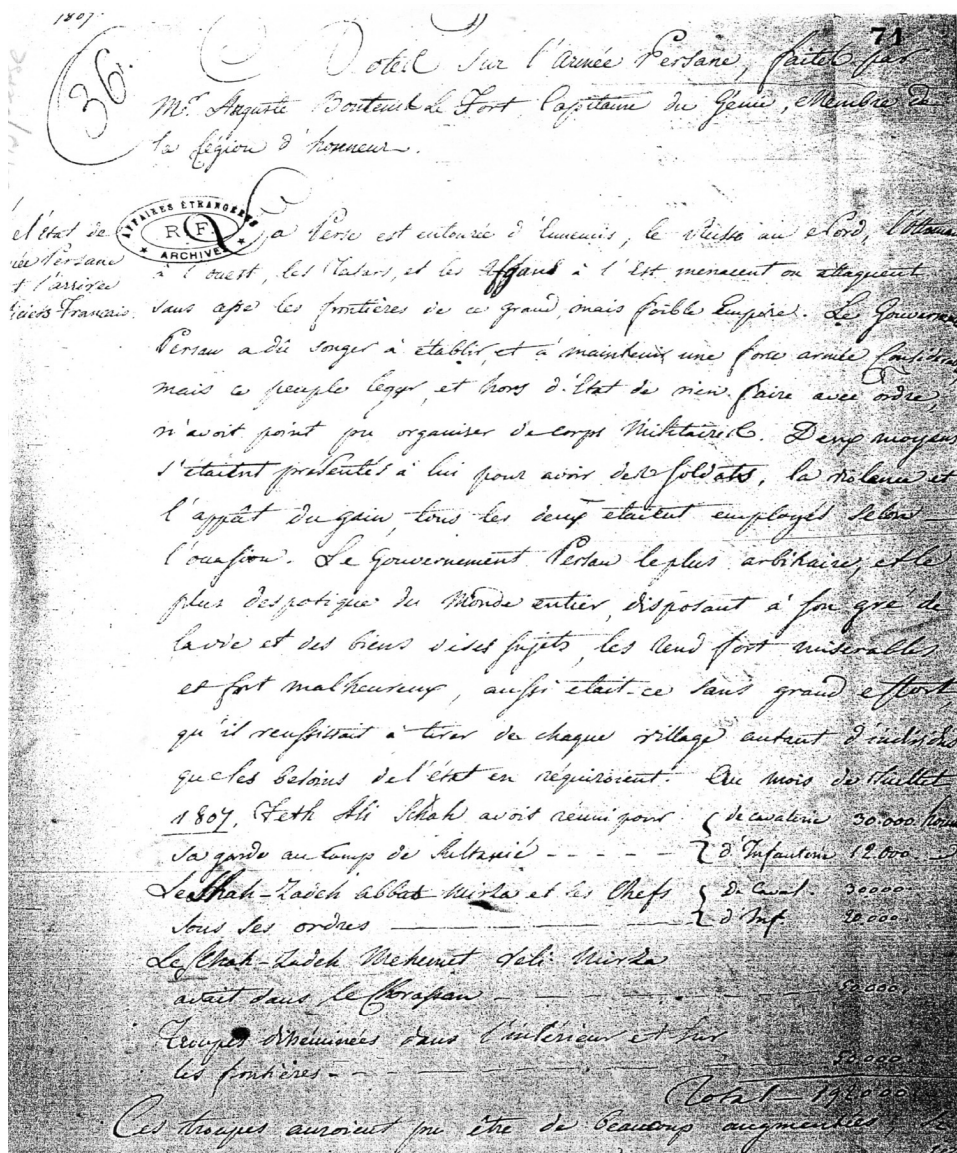 1807.
71
36.
Notes sur l'Armée Persane, faites par
Mr. Auguste Bontems Le Fort Capitaine du Génie, Membre de
la Légion d'honneur.
AFFAIRES ÉTRANGÈRES
RF
ARCHIVES
l'état de
Persane
l'arrivée
Français.
La Perse est entourée d'Ennemis, le Russe au Nord, l'Ottoman
à l'ouest, les Tatars, et les Affgans à l'Est menacent ou attaquent
sans cesse les frontières de ce grand, mais foible Empire. Le Gouverne
Persan a dû songer à établir, et à maintenir une force armée
mais ce peuple leger, et hors d'état de rien faire avec ordre,
n'avoit point pu organiser de corps Militaires. Deux moyens
s'étaient présentés à lui pour avoir des soldats, la violence et
l'appât du gain, tous les deux étaient employés selon
l'occasion. Le Gouvernement Persan le plus arbitraire, et le
plus despotique du Monde entier, disposant à son gré de
la vie et des biens de ses sujets, les rend fort misérables
et fort malheureux, aussi était-ce sans grand effort,
qu'il reussissait à tirer de chaque village autant d'individus
que les besoins de l'état en réquiroient. Au mois de Juillet
1807, Feth Ali Schah avoit réuni pour { de cavalerie 30.000 hom
sa garde au Camp de Sultanié - - - - - { d'Infanterie 12.000.
Le Shah-Zadeh abbas Mirza et les Chefs { de Caval. 30000.
sous ses ordres { d'Inf. 20.000.
Le Schah-Zadeh Mehemet Veli Mirza
avait dans le Chorassan - - - - - 50.000.
Troupes disséminées dans l'intérieur et sur
les frontières - - - - - 50.000.
Total 192000
Ces troupes auroient pu être de beaucoup augmentées,